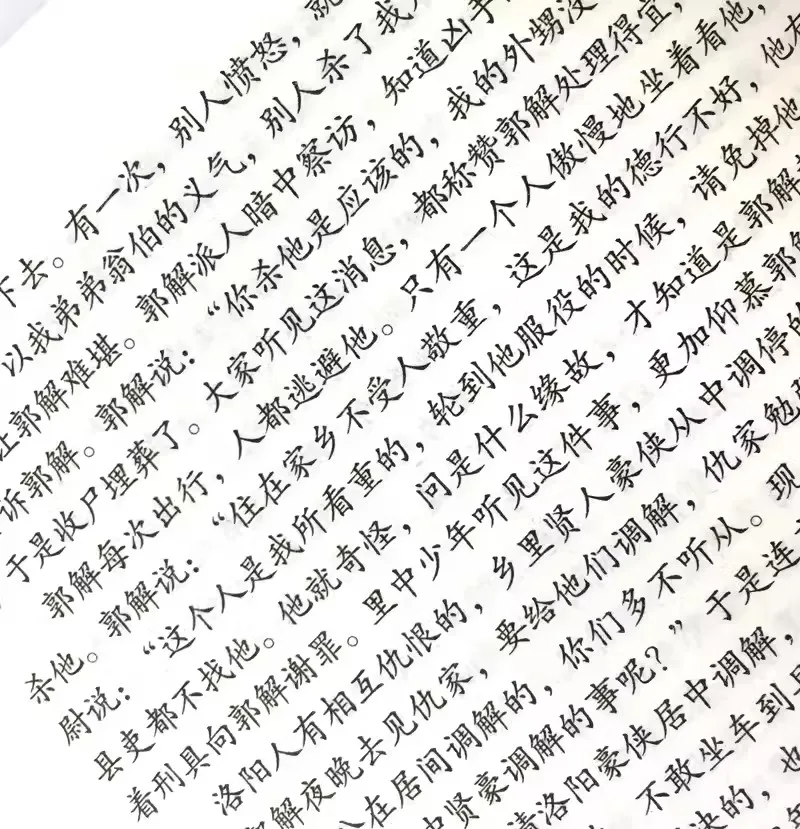 下去。有一次，别人愤怒，就
以我弟弟翁伯的义气，别人杀了我
让郭解难堪。郭解派人暗中察访，知道凶手
诉郭解。郭解说：“你杀他是应该的，我的外甥没
于是收尸埋葬了。大家听见这消息，都称赞郭解处理得宜，
郭解每次出行，人都逃避他。只有一个人傲慢地坐着看他，
杀他。郭解说：“住在家乡不受人敬重，这是我的德行不好，他有
尉说：“这个人是我所看重的，轮到他服役的时候，请免掉他
县吏都不找他。他就奇怪，问是什么缘故，才知道是郭解
着刑具向郭解谢罪。里中少年听见这件事，更加仰慕郭解
洛阳人有相互仇恨的，乡里贤人豪侠从中调停的
郭解夜晚去见仇家，要给他们调解，仇家勉
在居间调解的，你们多不听从。现
中贤豪调解的事呢？”于是连
请洛阳豪侠居中调解，
不敢坐车到县
决的，也